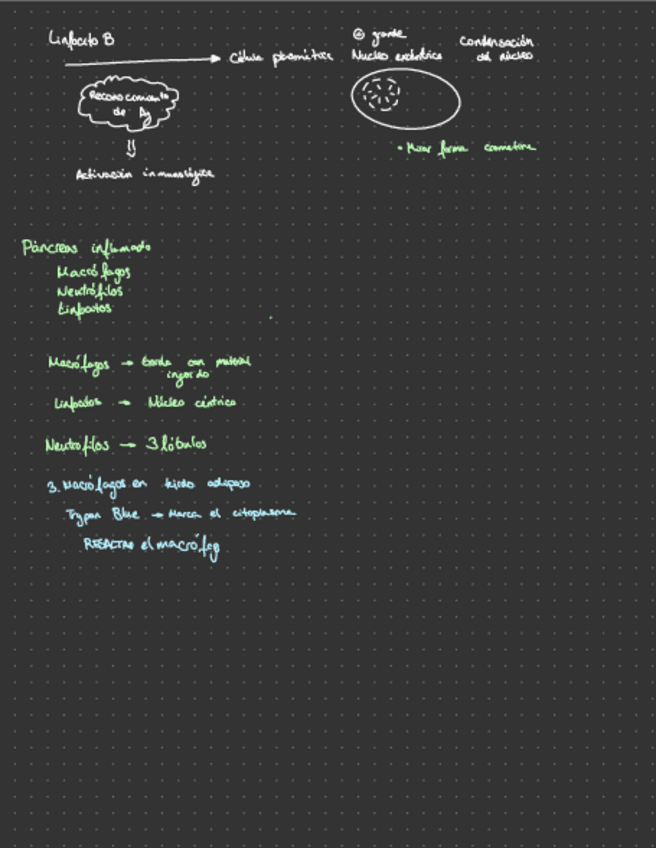 Linfocito B
Célula plasmática
⊕ grande
Núcleo excéntrico
Condensación
del núcleo
Reconocimiento
de Ag
⇓
Activación inmunológica
• Mirar forma cromatina
Páncreas inflamado
Macrófagos
Neutrófilos
Linfocitos
Macrófagos → con material
ingerido
Linfocitos → Núcleo céntrico
Neutrofilos → 3 lóbulos
3. Macrófagos en tejido adiposo
Trypan Blue → Marca el citoplasma
el macrófag